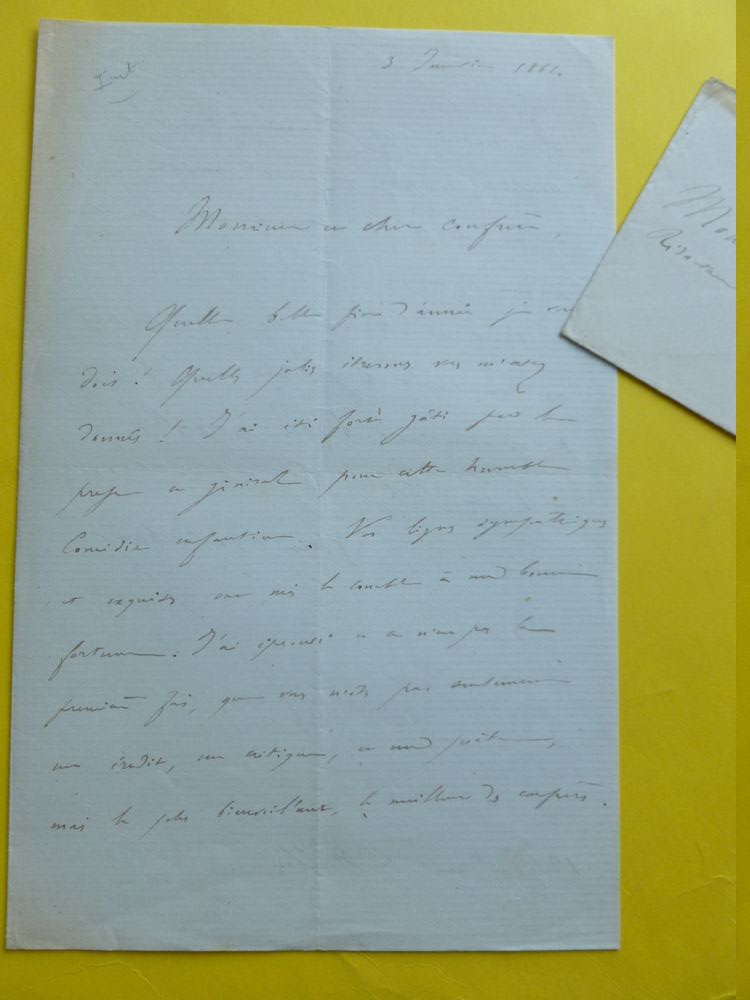 3 Janvier 1861.
Monsieur et cher confrère,
Quelle belle fin d'année je vous
dois ! Quelles jolies étrennes vous m'avez
données ! J'ai été fort gâté par la
presse en général pour cette humble
Comédie enfantine. Vos lignes sympathiques
et exquises ont mis le comble à ma bonne
fortune. J'ai éprouvé et ce n'est pas la
première fois, que vous n'êtes pas seulement
un érudit, un critique, et un poète,
mais le plus bienveillant, le meilleur des confrères.
Mon
Rédacteur